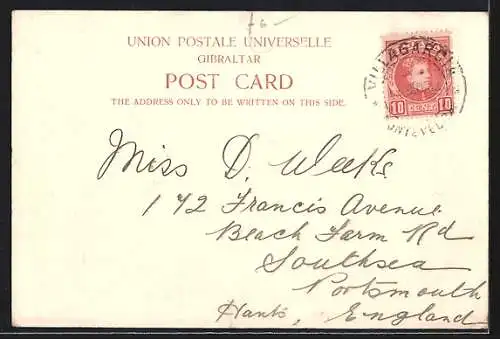 £6-
UNION POSTALE UNIVERSELLE
GIBRALTAR
POST CARD
THE ADDRESS ONLY TO BE WRITTEN ON THIS SIDE.
VILLAGARCIA
10 CENT 10
PONTEVED
Miss D. Weeks
172 Francis Avenue
Beach Farm Rd
Southsea
Portsmouth
Hants, England